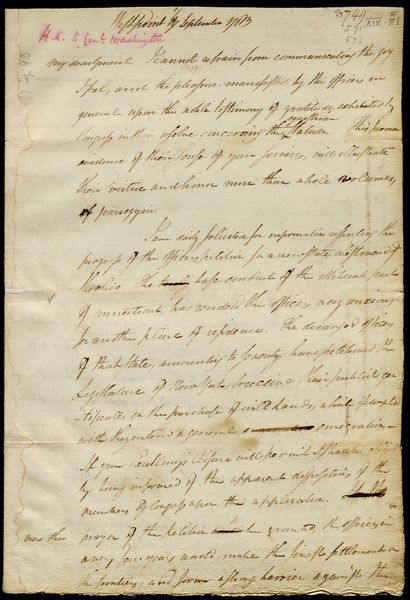 West point 17 September 1783
H.K. to Genl. Washington
my dear General I cannot refrain from communicating the joy
I feel, and the pleasure manifested by the officers in
general, upon the noble testimony of gratitude, exhibited by
Congress in their resolve concerning the equestrian Statue. This
evidence of their sense of your services, will illustrate
their virtue and honor more than whole volumes,
of panegyric.
I am daily solicited for information respecting the
progress of the officers petition for a new state westward of
the ohio. The base conduct of the illiberal part
of connecticut, has rendered the officers very anxious
for another place of residence. The deranged officers
of that State, amounting to seventy, have petitioned the
Legislature of New York, to receive their
certificates in the purchase of wild lands,
with they intend a general emigration—
If your Excellency's leisure will permit I shall be obliged
by being informed of the apparent dispositions of the
members of Congress upon the application.
prayer of the petition be granted, the officers in
a very few years would make the finest settlement on
the frontiers, and form a strong barrier against the